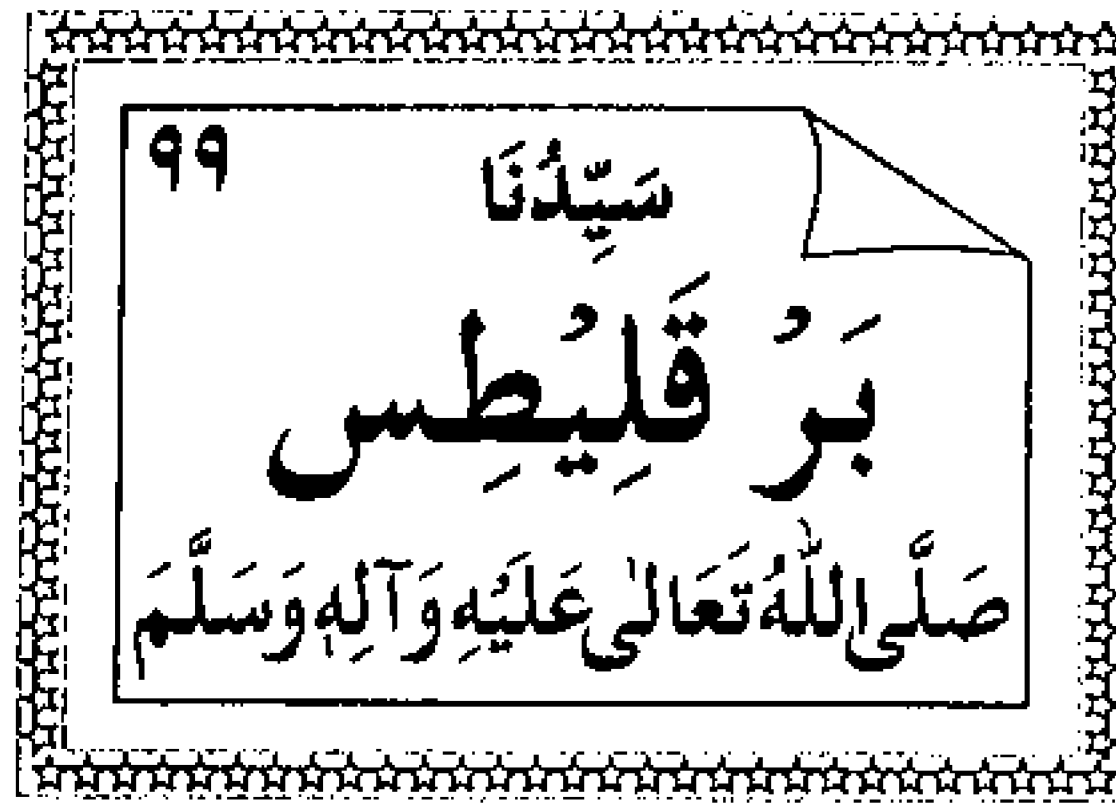 ۹۹
سَيِّدُنَا
بَرْ قَلِيْطِس
صَلَّى اللّٰهُ تَعَالٰى عَلَيْهِ وَآلِهٖ وَسَلَّمَ